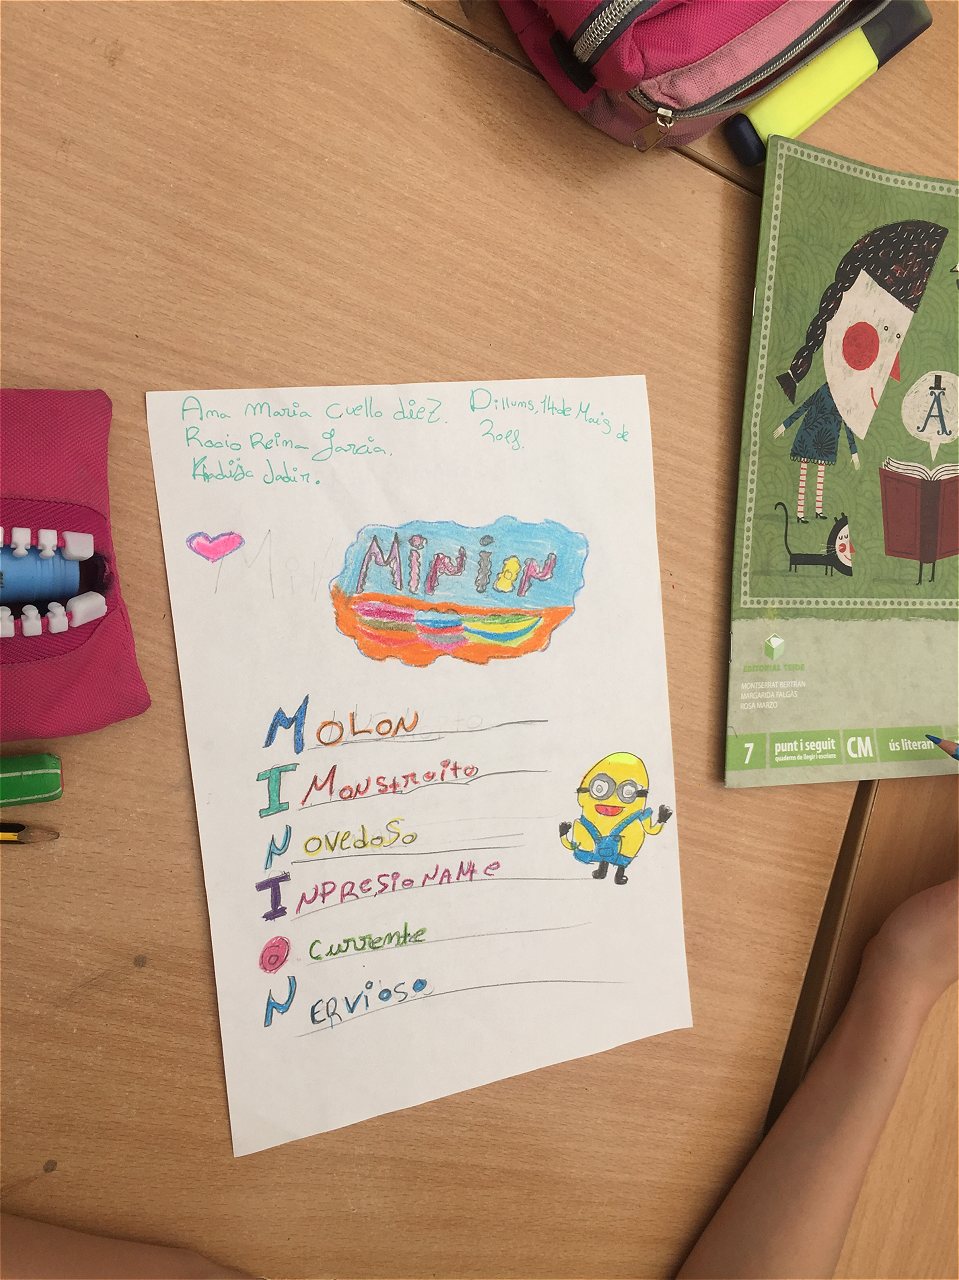 Ana Maria Cuello diez.
Rocio Reina García.
Khadija Jadir.
Dillums, 14 de Maig de
Minion
MOLON
I MONStRoito
NOVEdoSo
INPRESIONANte
Ocurrente
NERVioso
A
EDITORIAL TEIDE
MONTSERRAT BERTRAN
MARGARIDA FALGÀS
ROSA MARZO
7 punt i seguit CM ús literari
quaderns de llegir i escriure